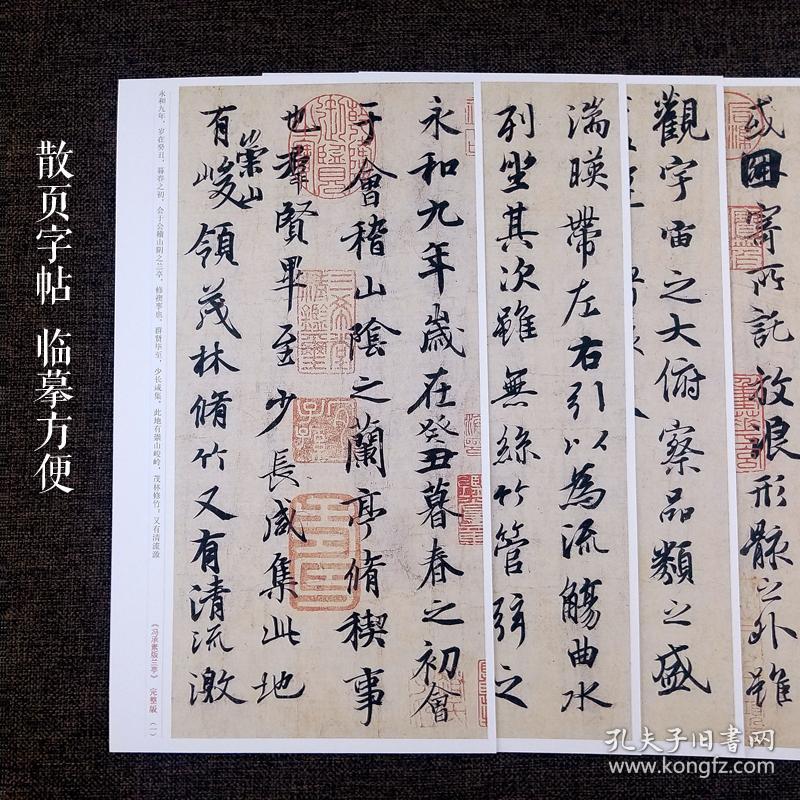 散页字帖 临摹方便
永和九年，岁在癸丑，暮春之初，会于会稽山阴之兰亭，修禊事也。群贤毕至，少长咸集。此地有崇山峻岭，茂林修竹；又有清流激
《冯承素版兰亭》 完整版（一）
永和九年歲在癸丑暮春之初會
于會稽山陰之蘭亭脩稧事
也羣賢畢至少長咸集此地
有崇山峻領茂林脩竹又有清流激
湍暎帶左右引以為流觴曲水
列坐其次雖無絲竹管弦之
觀宇宙之大俯察品類之盛
或因寄所託放浪形骸之外雖
孔夫子旧书网
www.kongfz.com